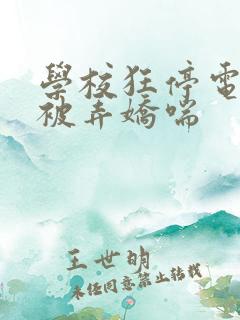 學校狂停電
被弄嬌喘
王世明
未經同意禁止轉載